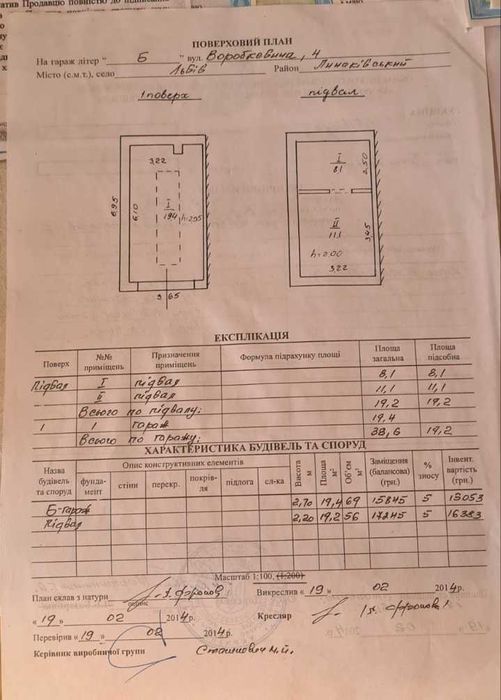 ПОВЕРХОВИЙ ПЛАН
На гараж літер " Б " вул. Воробкевича, 4
Місто (с.м.т.), село Львів Район Личаківський
1 поверх підвал
3,22
6,95
6,10
I
19,4
h=2,05
3,65
I
8,1
2,50
II
11,1
3,45
h=2,00
3,22
ЕКСПЛІКАЦІЯ
Поверх №№ приміщень Призначення приміщень Формула підрахунку площі Площа загальна Площа підсобна
Підвал I підвал 8,1 8,1
II підвал 11,1 11,1
Всього по підвалу: 19,2 19,2
1 1 гараж 19,4
Всього по гаражу: 38,6 19,2
ХАРАКТЕРИСТИКА БУДІВЕЛЬ ТА СПОРУД
Назва будівель та споруд Опис конструктивних елементів Висота м Площа м² Об'єм м³ Заміщення (балансова) (грн.) % зносу Інвент. вартість (грн.)
фунда-мент стіни перекр. покрів-ля підлога ел-ка
Б-гараж 2,70 19,4 69 15845 5 15053
Підвал 2,20 19,2 56 17245 5 16383
Масштаб 1:100, (1:200)
План склав з натури Викреслив « 19 » 02 2014р.
« 19 » 02 2014р. Кресляр
Перевірив « 19 » 02 2014р.
Керівник виробничої групи Сташкевич М.Й.